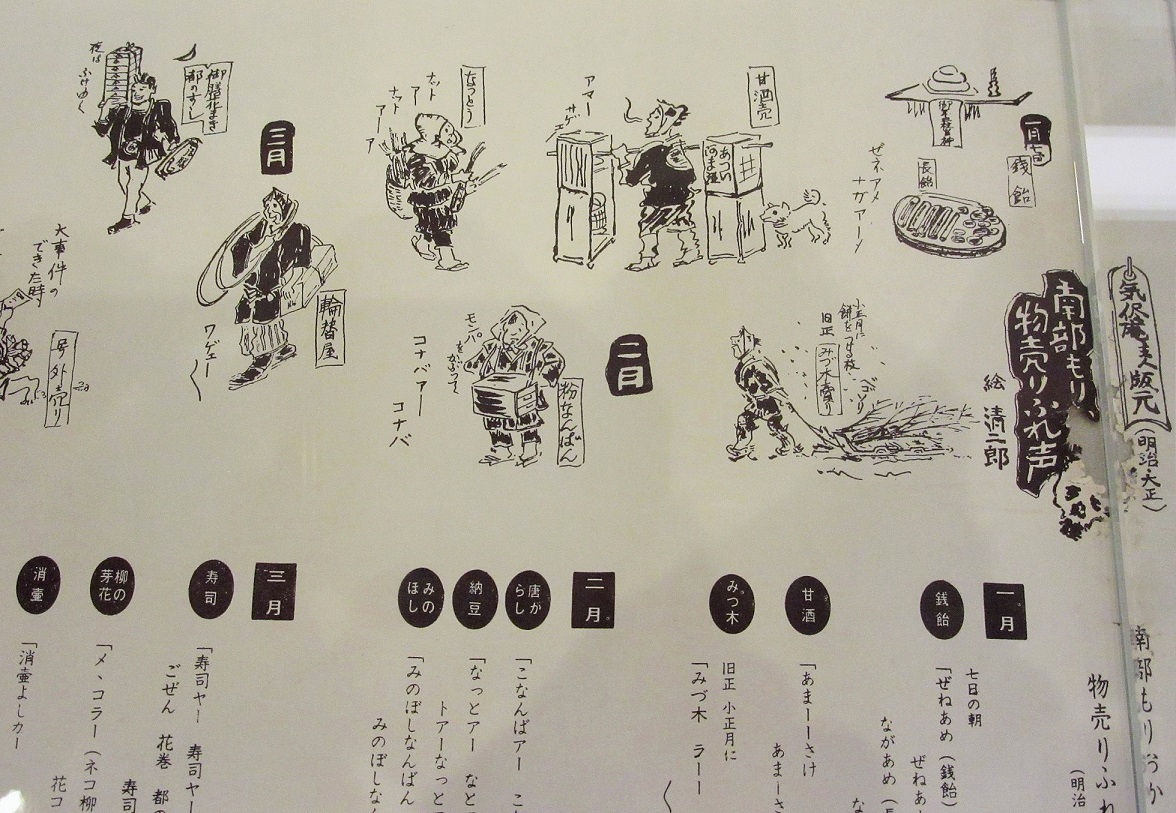 気仙庵主人版元
(明治・大正)
南部もり
物売りふれ声
絵 清二郎
一月七日
銭飴
長飴
ゼネアメ
ナガアーメ
甘酒売
あつい
あま酒
アマー
サゲ
なっとう
ナット
アー
ナット
アーア
都のすし
夜は
ふけゆく
小正月に
餅をつける枝
旧正
みづ木売り
二月
粉なんばん
モンペ
をかぶって
コナバアー
コナバ
三月
輪替屋
ワゲエー
大事件の
できた時
号外売り
物売りふれ
(明治
一月
銭飴
七日の朝
「ぜねあめ(銭飴)
ぜねあ
ながあめ(長
甘酒
「あまーーさけ
あまーさ
みづ木
旧正 小正月に
「みづ木 ラーー
二月
唐がらし
「こなんばアー こ
納豆
「なっとアー なと
トアーなっと
みのほし
「みのぼしなんばん
みのぼしなん
三月
寿司
「寿司ヤー 寿司ヤー
ごぜん 花巻 都の
寿司
柳の芽花
「メ、コラー(ネコ柳
花コ
消壷
「消壷よしカー